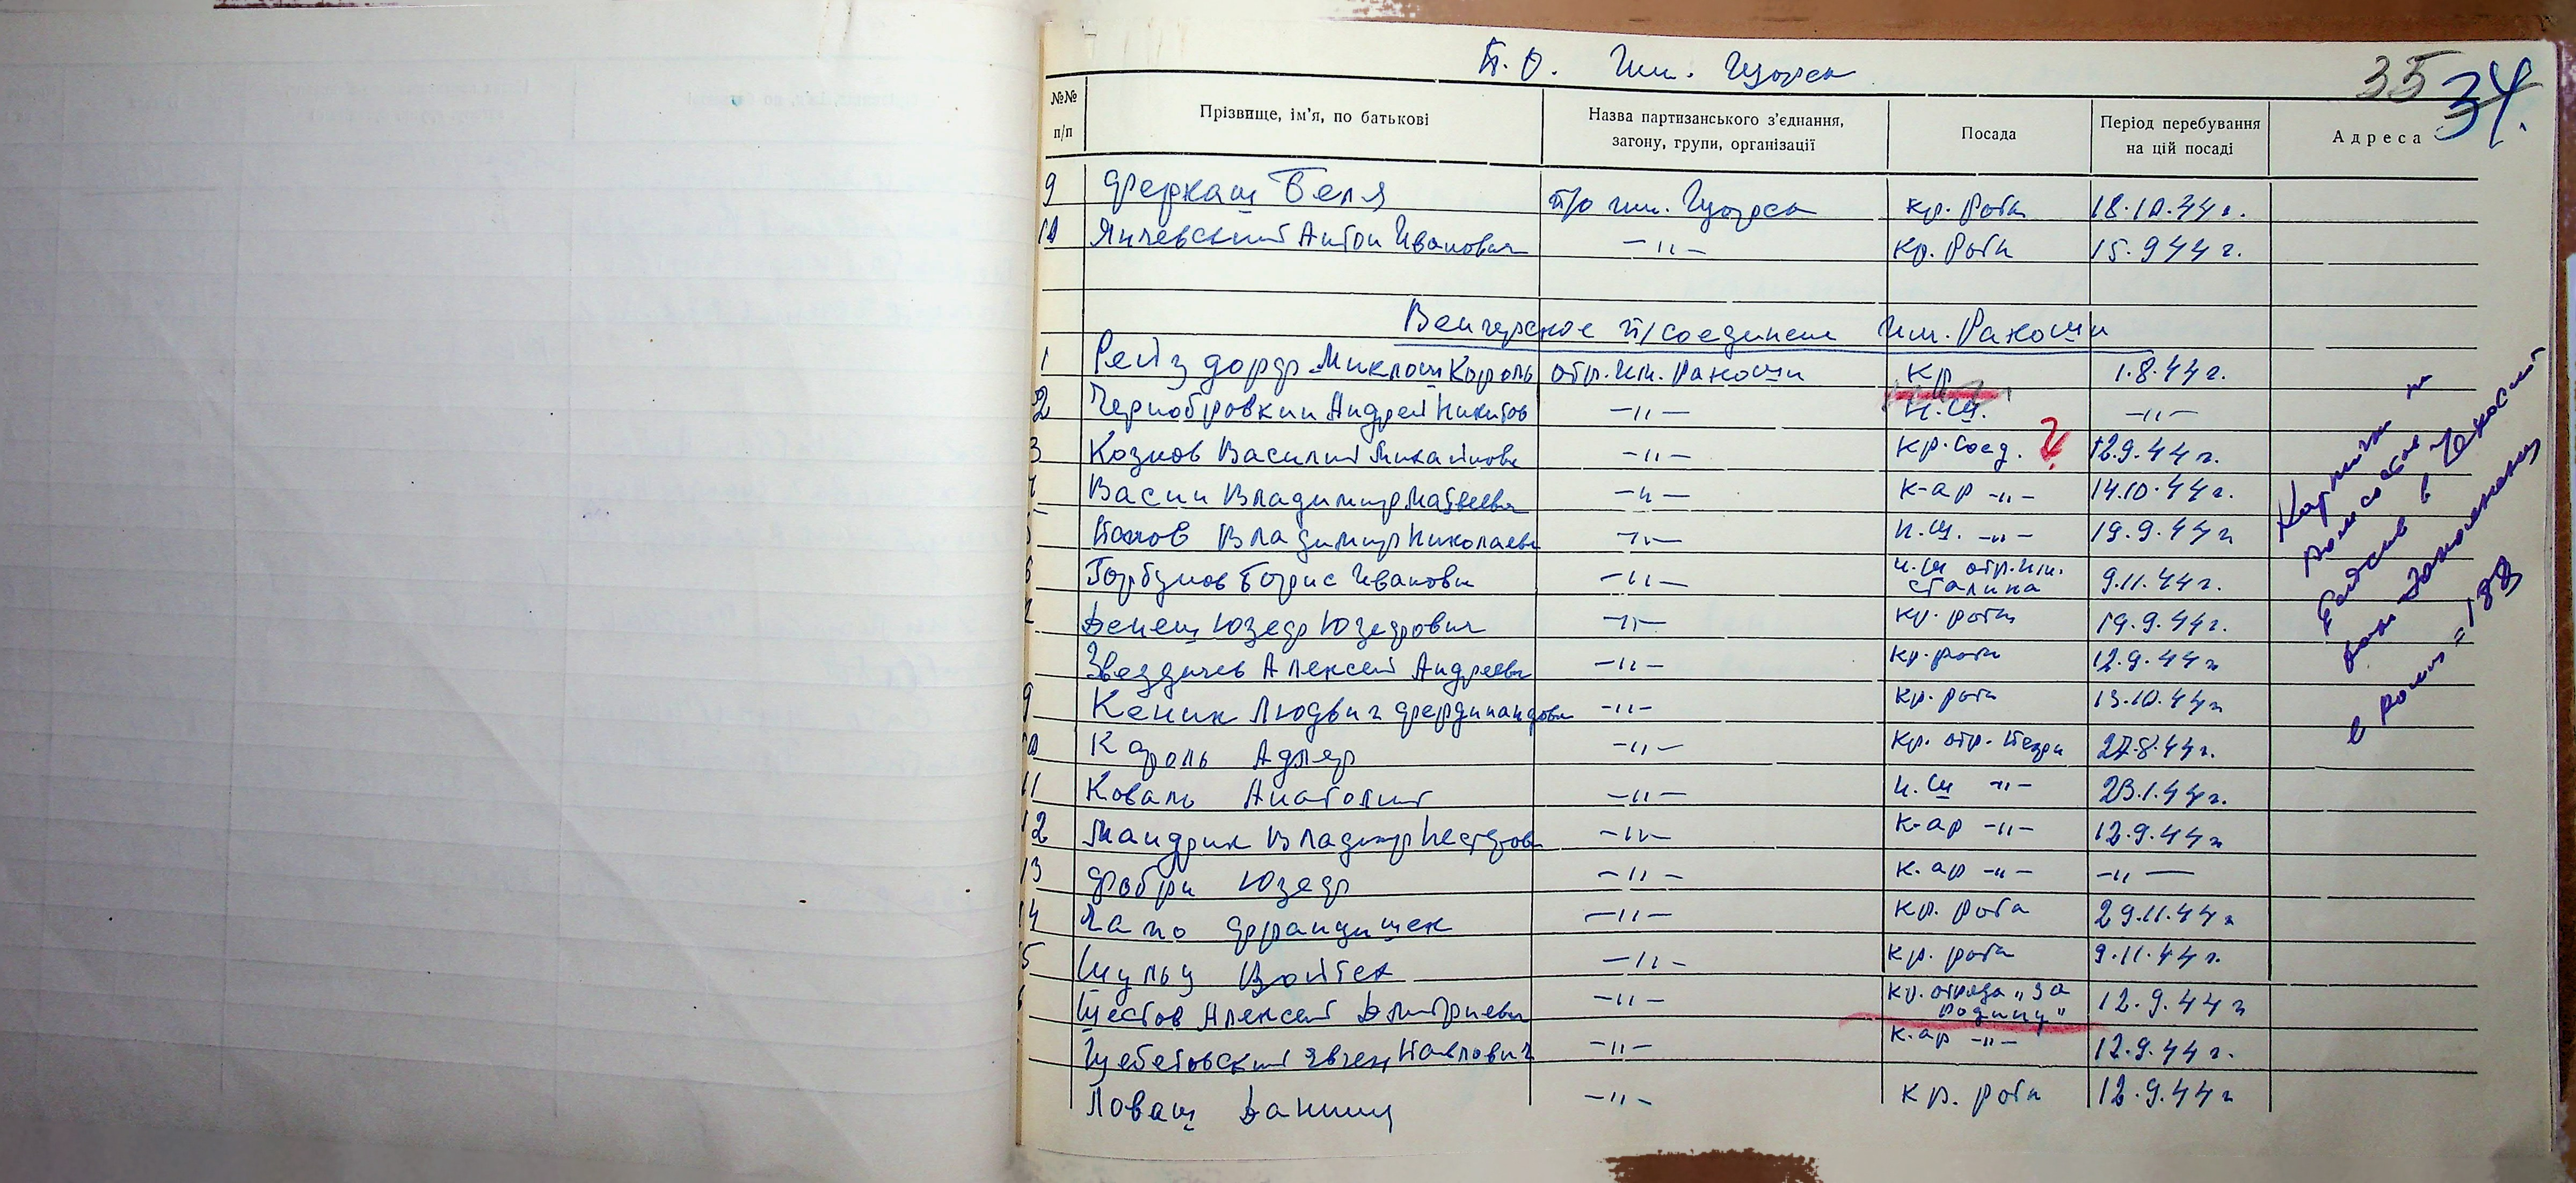 П.О. им. Щорса
35 34.
№№ п/п
Прізвище, ім'я, по батькові
Назва партизанського з'єднання, загону, групи, організації
Посада
Період перебування на цій посаді
Адреса
9 Феркаш Беля п/о им. Щорса кр. роты 18.10.44г.
10 Янчевский Антон Иванович –"– кр. роты 15.9 44г.
Венгерское п/соединен им. Ракоши
1 Рейздорф Миклош Король отр. им. Ракоши кр 1.8.44г.
2 Чернобровкин Андрей Никитов –"– н.ш. –"–
3 Козлов Василий Михайлович –"– кр. соед. ? 12.9.44г.
4 Васин Владимир Матвеевич –"– к-ар –"– 14.10.44г.
5 Попов Владимир Николаеви –"– н.ш. –"– 19.9.44г
6 Горбунов Борис Иванович –"– н.ш отр. им. Сталина 9.11.44г.
Денеш Юзеф Юзефович –"– кр. роты 19.9.44г.
Звездачев Алексей Андреевич –"– кр. роты 12.9.44г
9 Кеник Людвиг Фердинандови –"– кр. роты 13.10.44г
10 Кароль Адлер –"– кр. отр. 27.8.44г.
11 Коваль Анатолий –"– н.ш –"– 23.1.44г.
12 Мандрик Владимир Нестерови –"– к-ар –"– 12.9.44г
13 Фабри Юзеф –"– к.ар –"– –"–
14 Франдишек –"– кр. рота 29.11.44г
15 Шульц Войтек –"– кр. рота 9.11.44г.
Шестов Алексей Дмитриевич –"– кр. отряда „За Родину" 12.9.44г
Щебетовский Явген Павлович –"– к.ар –"– 12.9.44г.
Ловаш –"– кр. роты 12.9.44г
в 188